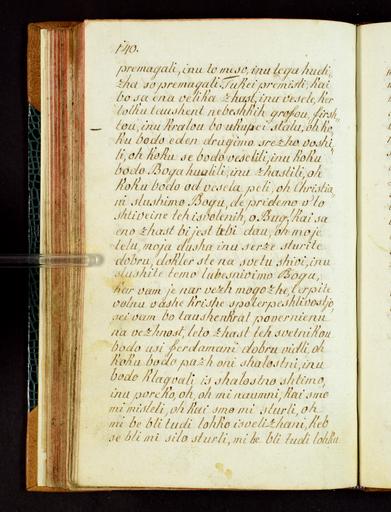 140.
premagali, inu to meso, inu tega hudi,
zha so premagali. Tukei premisli, kai
bo sa ena velika zhast, inu vesele, ker
tolku taushent nebeshkih grofou, firsh-
tou, inu kralou bo ukupei stalu, oh ko,
ku bodo eden drugimo srezho voshi,
li, oh koku se bodo veselili, inu koku
bodo Boga hualili, inu zhastili, oh
koku bodo od vesela peli, oh Christia,
ni slushimo Bogu, de prideno v to
shtiveine teh isvolenih, o Bug, kai sa
eno zhast bi jest tebi dau, oh moje
telu, moja dusha inu serze sturite
dobru, dokler ste na svetu shivi, inu
slushite temo lubesnivimo Boga,
ker vam je nar vezh mogozhe, terpite
volnu vashe krishe spoterpeshlivostjo,
sei vam bo taushenkrat povernienu
na vezhnost, leto zhast teh svetnikou
bodo usi ferdamani dobru vidli, oh
koku bodo pazh oni shalostni, inu
bodo klagvali is shalostno shtimo,
inu poreko, oh, oh mi naumni, kai smo
mi misleli, oh kai smo mi sturli, oh
mi be bli tudi lohko isvelizhani, keb
se bli mi silo sturli, mi be bli tudi lohku